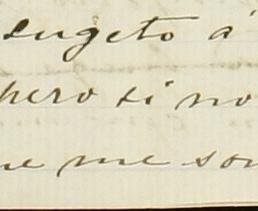 sugeto á
pero si no
me son